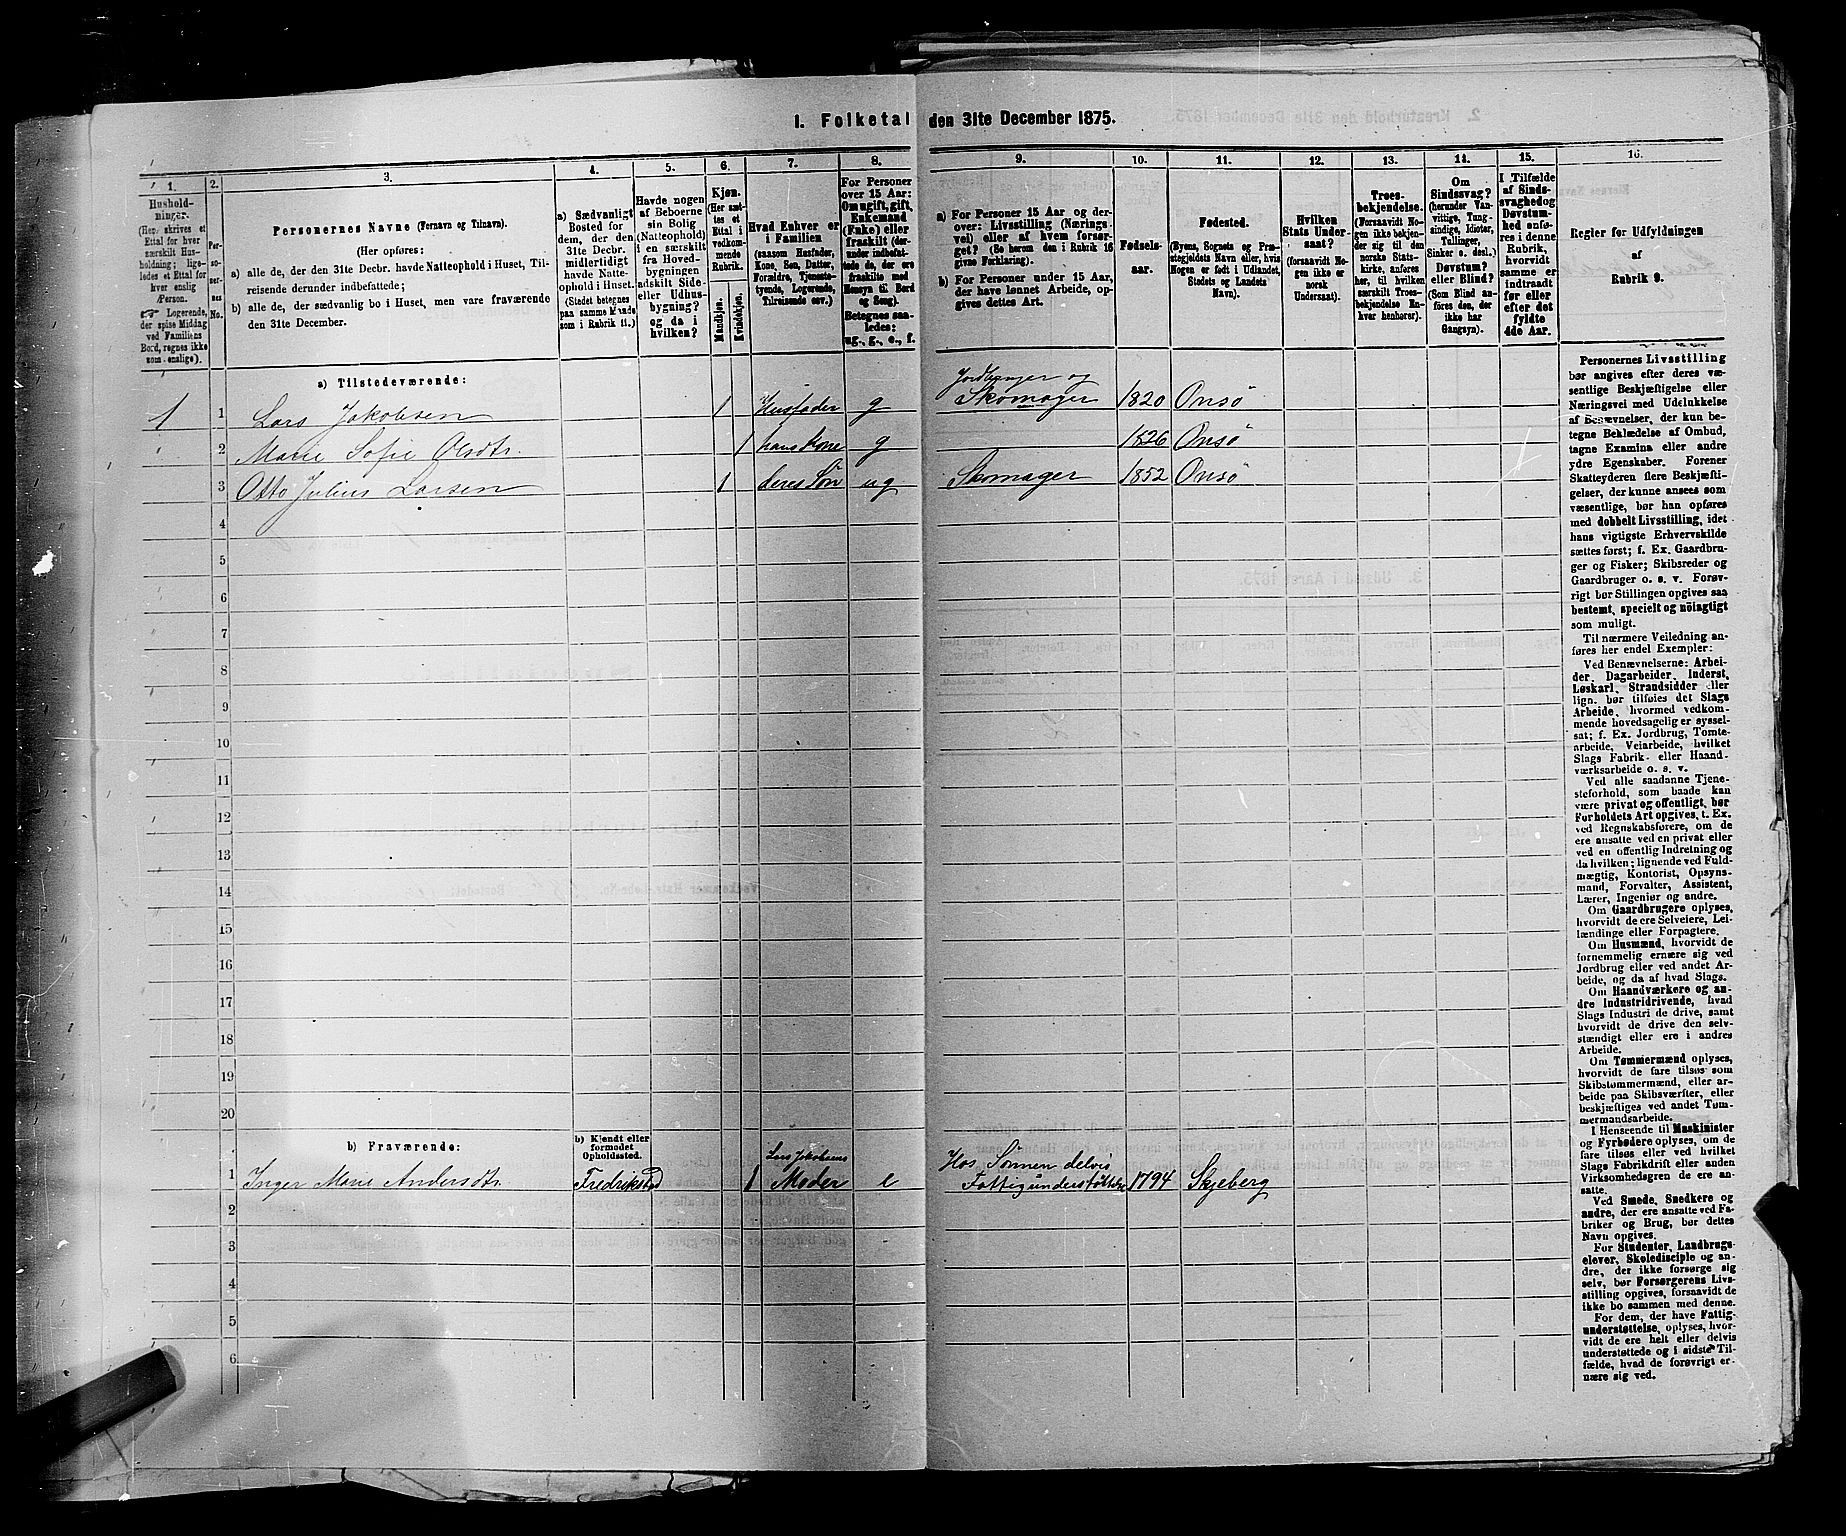 1. Folketal den 31te December 1875.
1.
Hushold-
ninger.
(Her skrives et
Ettal for hver
særskilt Hus-
holdning; lige-
ledes et Ettal for
hver enslig
Person.
Logerende,
der spise Middag
ved Familiens
Bord, regnes ikke
som enslige).
2.
Per-
so-
ner-
nes
No.
3.
Personernes Navne (Fornavn og Tilnavn).
(Her opføres:
a) alle de, der den 31te Decbr. havde Natteophold i Huset, Til-
reisende derunder indbefattede;
b) alle de, der sædvanlig bo i Huset, men vare fraværende
den 31te December.
4.
a) Sædvanligt
Bosted for
dem, der den
31te Decbr.
midlertidigt
havde Natte-
ophold i Huset.
(Stedet betegnes
paa samme Maade
som i Rubrik 11.)
5.
Havde nogen
af Beboerne
sin Bolig
(Natteophold)
i en særskilt
fra Hoved-
bygningen
adskilt Side-
eller Udhus-
bygning?
og da i
hvilken?
6.
Kjøn.
(Her sæt-
tes et
Ettal i
vedkom-
mende
Rubrik.
Mandkjøn.
Kvindekjøn.
7.
Hvad Enhver er
i Familien
(saasom Husfader,
Kone, Søn, Datter,
Forældre, Tjeneste-
tyende, Logerende,
Tilreisende osv.)
8.
For Personer
over 15 Aar:
Om ugift, gift,
Enkemand
(Enke) eller
fraskilt (der-
under indbefat-
tede de, der ere
fraskilte med
Hensyn til Bord
og Seng).
Betegnes saa-
ledes:
ug., g., e., f.
9.
a) For Personer 15 Aar og der-
over: Livsstilling (Nærings-
vei) eller af hvem forsør-
get? (Se herom den i Rubrik 16
givne Forklaring).
b) For Personer under 15 Aar,
der have lønnet Arbeide, op-
gives dettes Art.
10.
Fødsels-
aar.
11.
Fødested.
(Byens, Sognets og Præ-
stegjeldets Navn, eller, hvis
Nogen er født i Udlandet,
Stedets og Landets
Navn).
12.
Hvilken
Stats Under-
saat?
(forsaavidt No-
gen ikke er
norsk
Undersaat).
13.
Troes-
bekjendelse.
(Forsaavidt No-
gen ikke bekjen-
der sig til den
norske Stats-
kirke, anføres
her, til hvilken
særskilt Troes-
bekjendelse En-
hver henhører).
14.
Om
Sindssvag?
(herunder Van-
vittige, Tung-
sindige, Idioter,
Tullinger,
Sinker o. desl.)
Døvstum?
eller Blind?
(Som Blind an-
føres den, der
ikke har
Gangsyn).
15.
I Tilfælde
af Sinds-
svaghed og
Døvstum-
hed anfø-
res i denne
Rubrik,
hvorvidt
samme er
indtraadt
før eller
efter det
fyldte
4de Aar.
16.
Regler for Udfyldningen
af
Rubrik 9.
a) Tilstedeværende:
1 1 Lars Jakobsen 1 Husfader g Jordbruger og Skomager 1820 Onsö
2 Marie Sofie Olsdtr. 1 hans Kone g 1826 Onsö
3 Otto Julius Larsen 1 deres Søn ug Skomager 1852 Onsö
4
5
6
7
8
9
10
11
12
13
14
15
16
17
18
19
20
b) Fraværende:
b) Kjendt eller
formodet
Opholdssted.
1 Inger Marie Andersdtr. Fredrikstad 1 Lars Jakobsens Moder e Hos Sønnen delvis Fattigunderstøttelse 1794 Skjeberg
2
3
4
5
6
Personernes Livsstilling
bør angives efter deres væ-
sentlige Beskjæftigelse eller
Næringsvei med Udelukkelse
af Benævnelser, der kun be-
tegne Beklædelse af Ombud,
tagne Examina eller andre
ydre Egenskaber. Forener
Skatteyderen flere Beskjæfti-
gelser, der kunne ansees som
væsentlige, bør han opføres
med dobbelt Livsstilling, idet
hans vigtigste Erhvervskilde
sættes først; f. Ex. Gaardbru-
ger og Fisker; Skibsreder og
Gaardbruger o. s. v. Forøv-
rigt bør Stillingen opgives saa
bestemt, specielt og nöiagtigt
som muligt.
Til nærmere Veiledning an-
føres her endel Exempler:
Ved Benævnelserne: Arbei-
der, Dagarbeider, Inderst,
Løskarl, Strandsidder eller
lign. bør tilføies det Slags
Arbeide, hvormed vedkom-
mende hovedsagelig er syssel-
sat; f. Ex. Jordbrug, Tomte-
arbeide, Veiarbeide, hvilket
Slags Fabrik- eller Haand-
værksarbeide o. s. v.
Ved alle saadanne Tjene-
steforhold, som baade kan
være privat og offentligt, bør
Forholdets Art opgives, f. Ex.
ved Regnskabsførere, om de
ere ansatte ved en privat eller
ved en offentlig Indretning og
da hvilken; lignende ved Fuld-
mægtig, Kontorist, Opsyns-
mand, Forvalter, Assistent,
Lærer, Ingeniør og andre.
Om Gaardbrugere oplyses,
hvorvidt de ere Selveiere, Lei-
lændinge eller Forpagtere.
Om Husmænd, hvorvidt de
fornemmelig ernære sig ved
Jordbrug eller ved andet Ar-
beide, og da af hvad Slags.
Om Haandværkere og an-
dre Industridrivende, hvad
Slags Industri de drive, samt
hvorvidt de drive den selv-
stændigt eller ere i andres
Arbeide.
Om Tømmermænd oplyses,
hvorvidt de fare tilsøs som
Skibstømmermænd, eller ar-
beide paa Skibsværfter, eller
beskjæftiges ved andet Tøm-
mermandsarbeide.
I Henseende til Maskinister
og Fyrbødere oplyses, om de
fare tilsøs eller ved hvilket
Slags Fabrikdrift eller anden
Virksomhedsgren de ere an-
satte.
Ved Smede, Snedkere og
andre, der ere ansatte ved Fa-
briker og Brug, bør dettes
Navn opgives.
For Studenter, Landbrugs-
elever, Skoledisciple og an-
dre, der ikke forsørge sig
selv, bør Forsørgerens Livs-
stilling opgives, forsaavidt de
ikke bo sammen med denne.
For dem, der have Fattig-
understøttelse, oplyses, hvor-
vidt de ere helt eller delvis
understøttede og i sidste Til-
fælde, hvad de forøvrigt er-
nære sig ved.